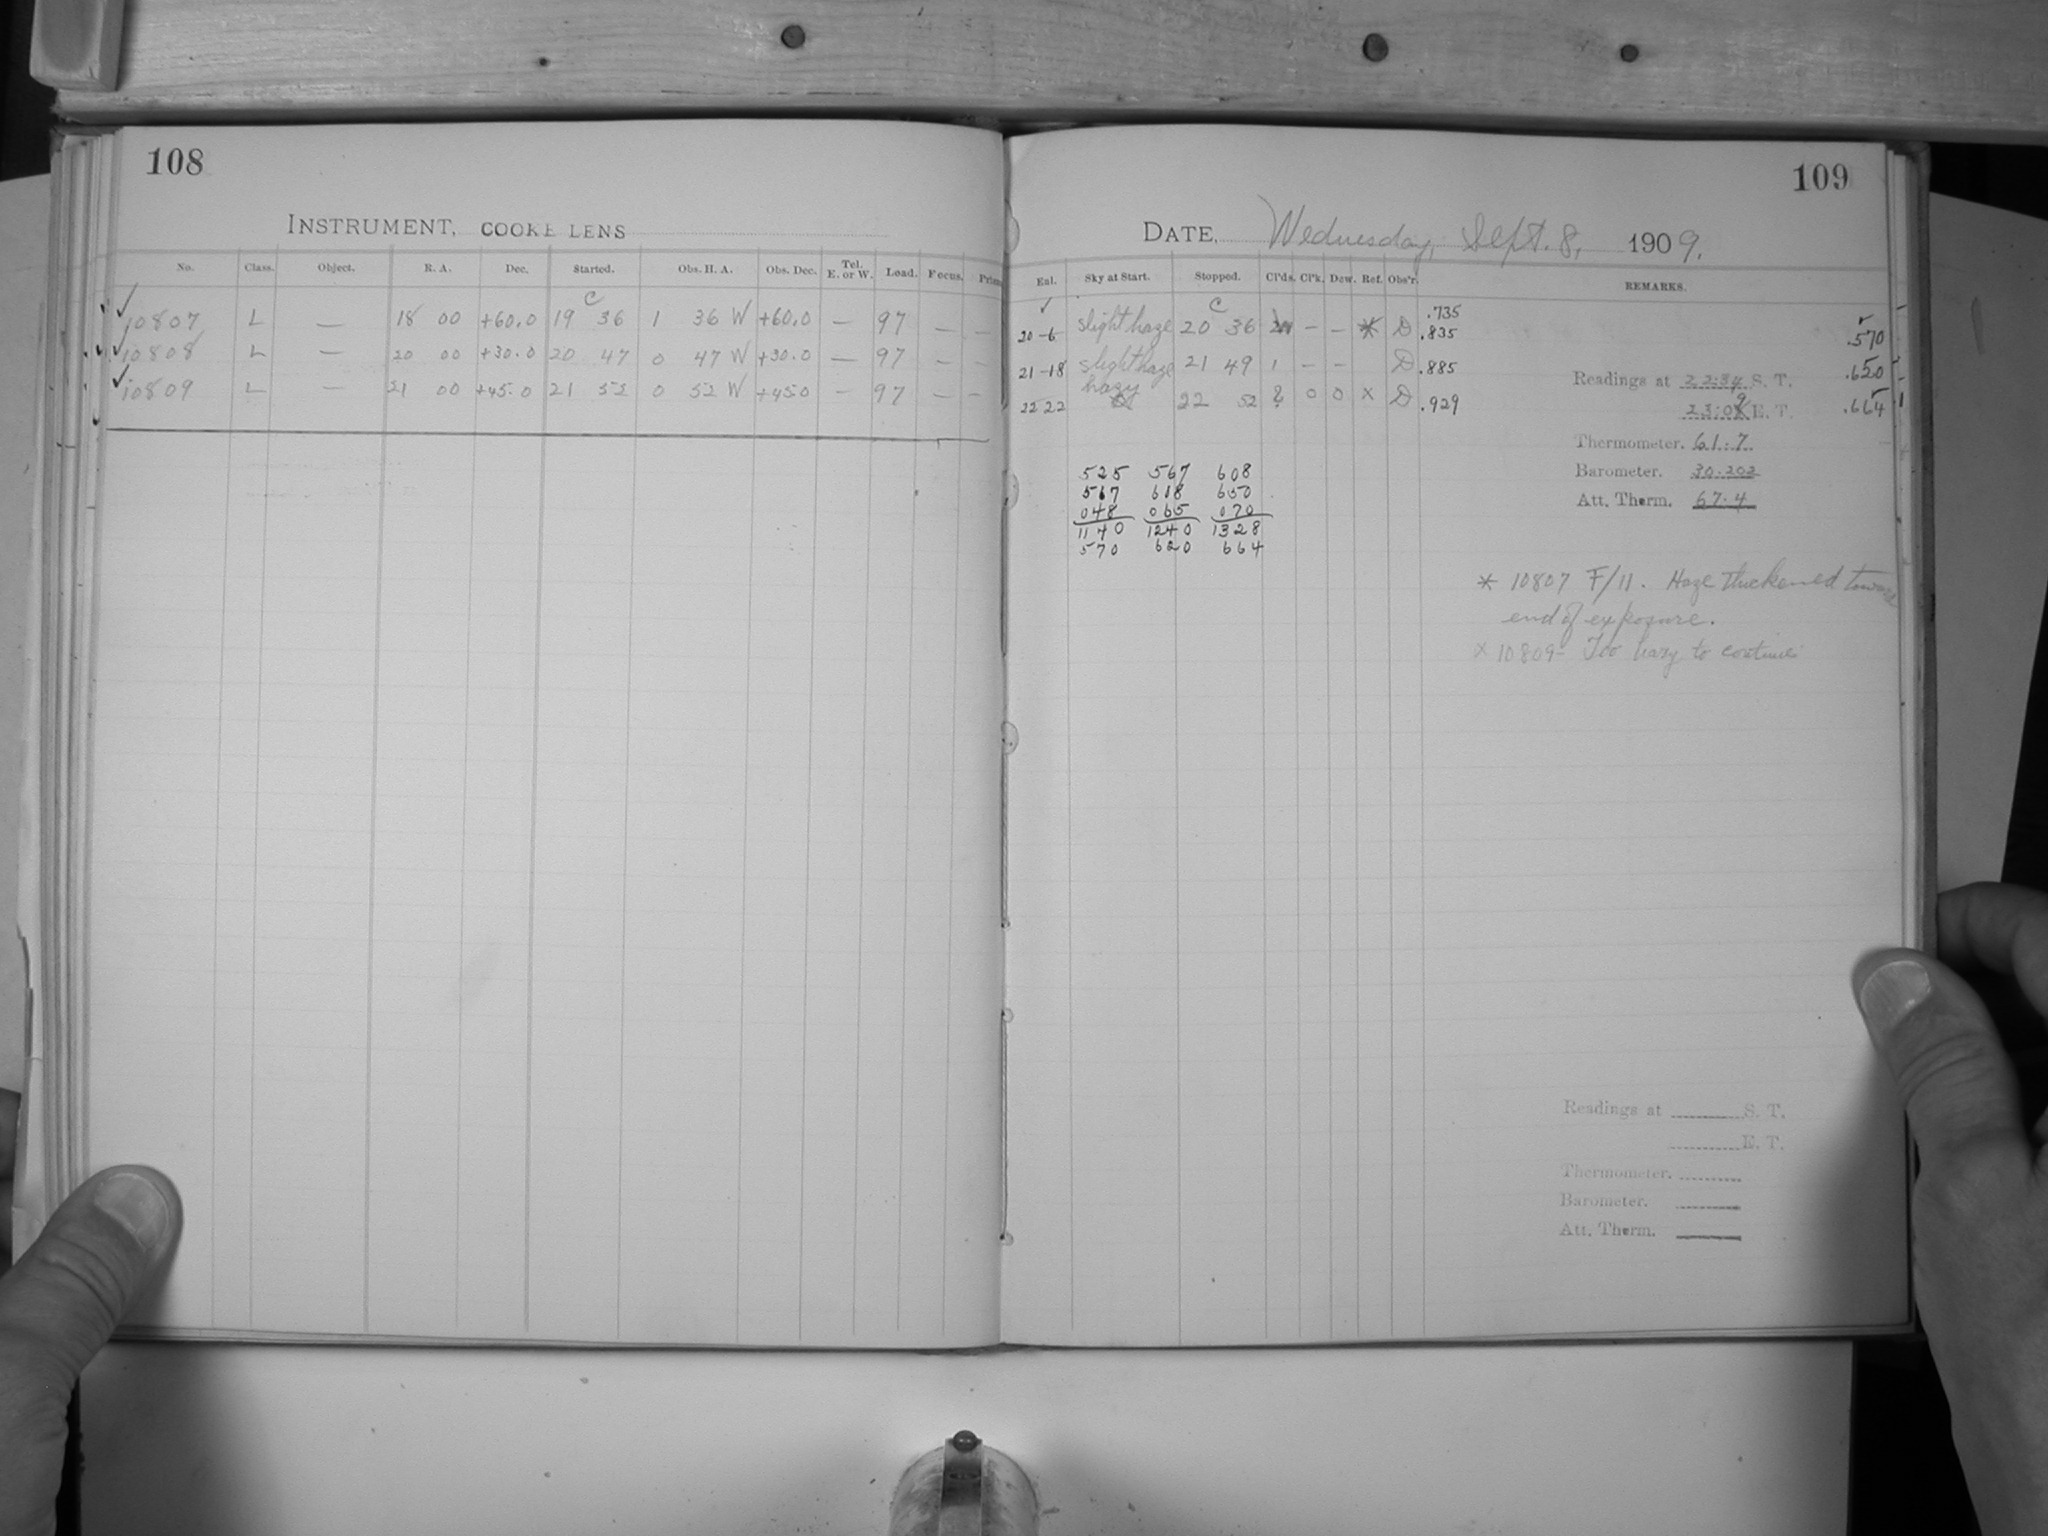 108
INSTRUMENT, COOKE LENS
No. Class. Object. R. A. Dec. Started. Obs. H. A. Obs. Dec. Tel. E. or W. Load. Focus.
C
✓ 10807 L — 18 00 +60.0 19 36 1 36 W +60.0 — 97 — —
✓ 10808 L — 20 00 +30.0 20 47 0 47 W +30.0 — 97 — —
✓ 10809 L — 21 00 +45.0 21 52 0 52 W +45.0 — 97 — —
109
DATE, Wednesday, Sept. 8, 1909.
Eal. Sky at Start. Stopped. Cl'ds. Cl'k. Dew. Ref. Obs'r. REMARKS.
✓ C .735
20-6 slight haze 20 36 — — * D .835 .570
21-18 slight haze 21 49 1 — — D .885 .620
hazy
22 22 22 52 2 0 0 x D .929 .664
Readings at 22:34 S. T.
23:09 E. T.
Thermometer. 61.7
Barometer. 30.202
Att. Therm. 67.4
525 567 608
567 618 650
048 065 070
1140 1240 1328
570 620 664
* 10807 F/11. Haze thickened toward
end of exposure.
x 10809- Too hazy to continue
Readings at S. T.
E. T.
Thermometer.
Barometer.
Att. Therm.